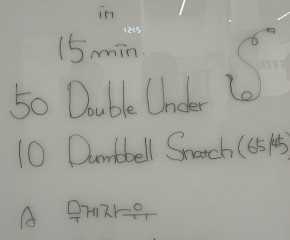 in
1215
15 min.
50 Double Under
10 Dumbbell Snatch (65/45)
A 무게자유